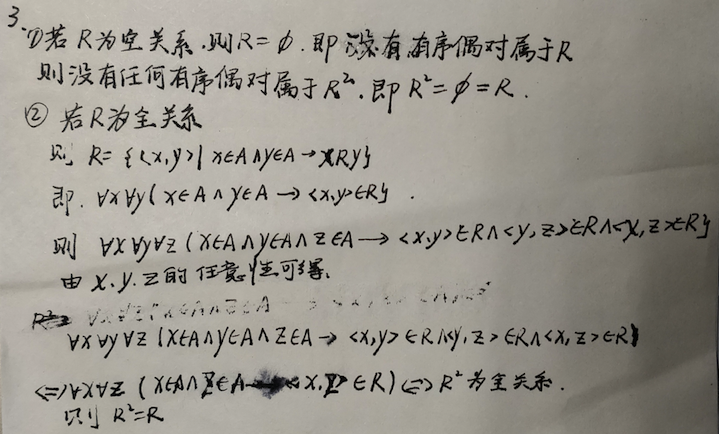 3.
①若R为空关系.则R=ϕ.即没有有序偶对属于R
则没有任何有序偶对属于R².即R²=ϕ=R.
② 若R为全关系
则 R={<x,y>|x∈A∧y∈A→xRy}
即.∀x∀y(x∈A∧y∈A→<x,y>∈R} .
则 ∀x∀y∀z(x∈A∧y∈A∧z∈A→<x,y>∈R∧<y,z>∈R∧<x,z>∈R}
由x.y.z的任意性可得.
∀x∀y∀z(x∈A∧y∈A∧z∈A→<x,y>∈R∧<y,z>∈R∧<x,z>∈R)
<=>∀x∀z(x∈A∧z∈A→<x,z>∈R)<=>R²为全关系.
则R²=R